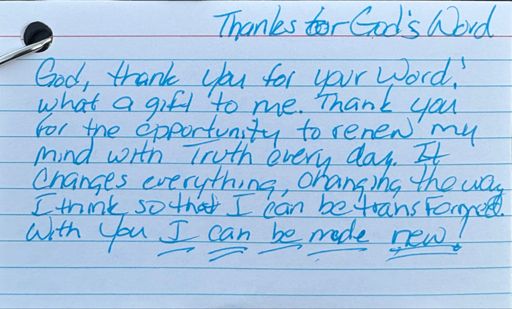 Thanks for God's Word
God, thank you for your Word!
what a gift to me. Thank you
for the opportunity to renew my
mind with Truth every day. It
changes everything, changing the way
I think so that I can be transformed.
With you I can be made new!